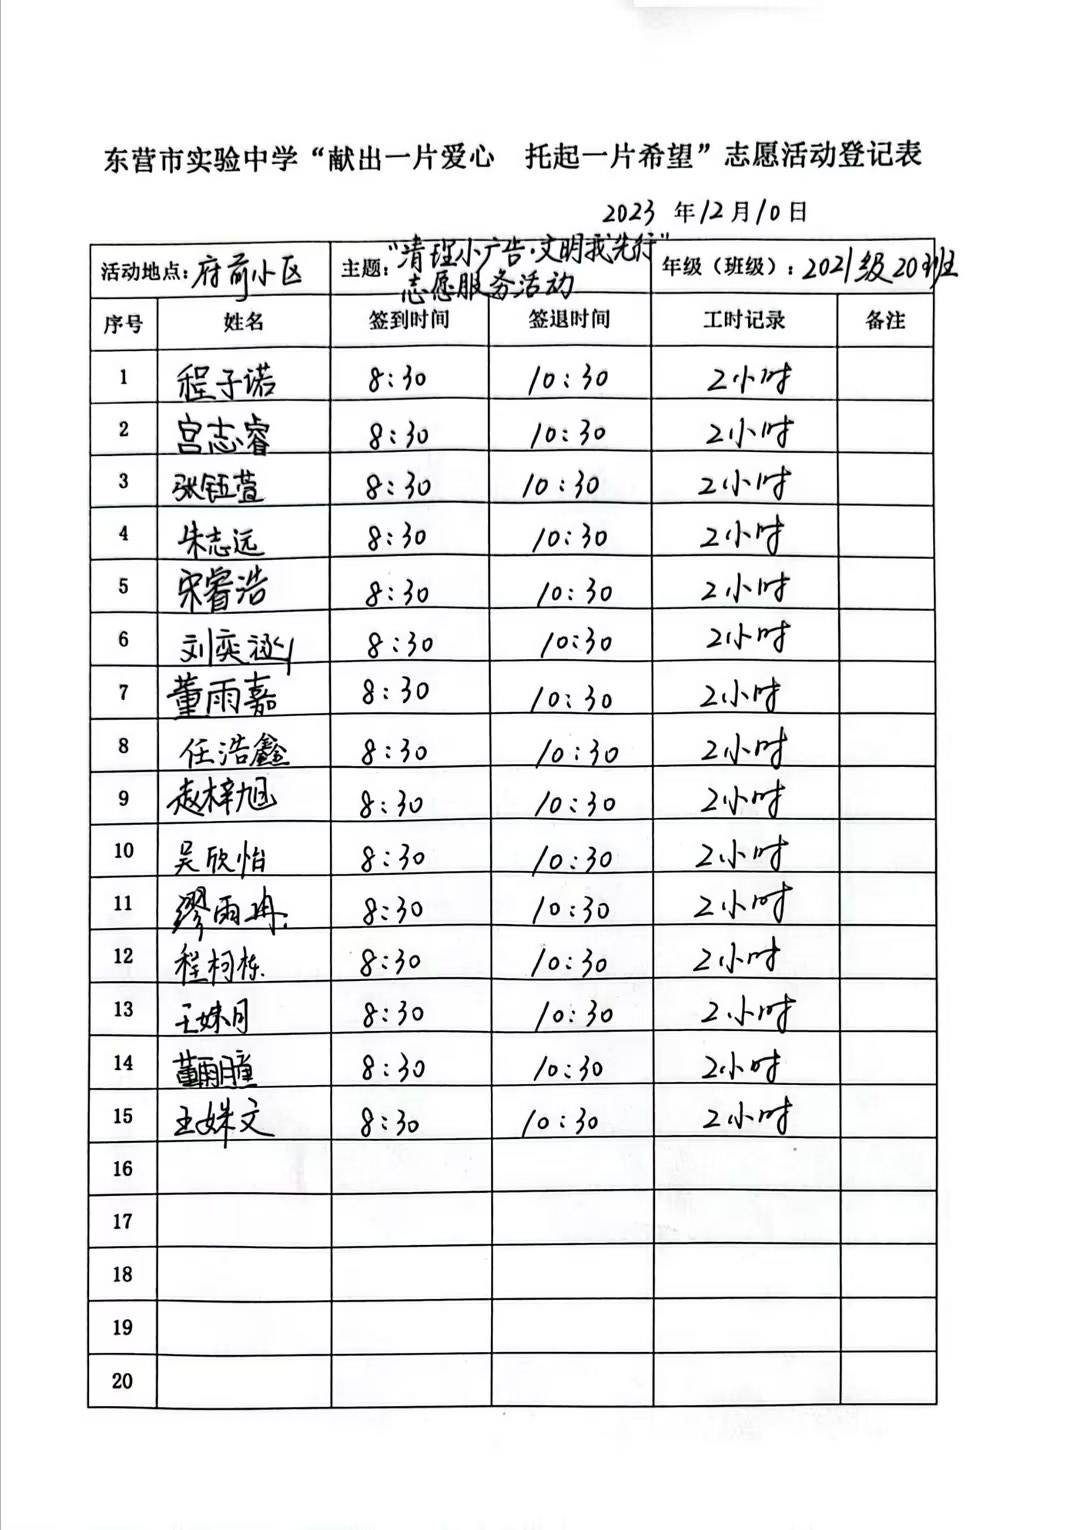 东营市实验中学“献出一片爱心 托起一片希望”志愿活动登记表
2023 年12月10日
活动地点：府前小区 主题：“清理小广告·文明我先行”志愿服务活动 年级（班级）：2021级20班
序号 姓名 签到时间 签退时间 工时记录 备注
1 程子诺 8:30 10:30 2小时
2 宫志睿 8:30 10:30 2小时
3 张钰萱 8:30 10:30 2小时
4 朱志远 8:30 10:30 2小时
5 宋睿浩 8:30 10:30 2小时
6 刘奕 8:30 10:30 2小时
7 董雨嘉 8:30 10:30 2小时
8 任浩鑫 8:30 10:30 2小时
9 赵梓旭 8:30 10:30 2小时
10 吴欣怡 8:30 10:30 2小时
11 缪雨冉 8:30 10:30 2小时
12 程柯栋 8:30 10:30 2小时
13 王姝月 8:30 10:30 2小时
14 董雨瞳 8:30 10:30 2小时
15 王姝文 8:30 10:30 2小时
16
17
18
19
20